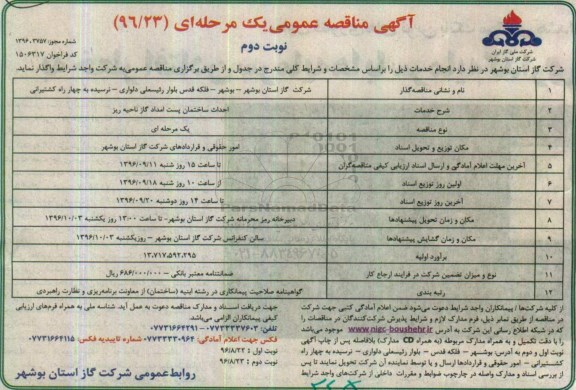 آگهی مناقصه عمومی یک مرحله‌ای (۹۶/۲۳)
نوبت دوم
شماره مجوز: ۱۳۹۶.۳۷۵۷
کد فراخوان ۱۵۰۶۳۱۷
شرکت ملی گاز ایران
شرکت گاز استان بوشهر
شرکت گاز استان بوشهر در نظر دارد انجام خدمات ذیل را براساس مشخصات و شرایط کلی مندرج در جدول و از طریق برگزاری مناقصه عمومی به شرکت واجد شرایط واگذار نماید.
۱ نام و نشانی مناقصه‌گذار شرکت گاز استان بوشهر – بوشهر – فلکه قدس بلوار رئیسعلی دلواری – نرسیده به چهار راه کشتیرانی
۲ شرح خدمات احداث ساختمان پست امداد گاز ناحیه ریز
۳ نوع مناقصه یک مرحله ای
۴ مکان توزیع و تحویل اسناد امور حقوقی و قراردادهای شرکت گاز استان بوشهر
۵ آخرین مهلت اعلام آمادگی و ارسال اسناد ارزیابی کیفی مناقصه‌گران تا ساعت ۱۵ روز شنبه ۱۳۹۶/۰۹/۱۱
۶ اولین روز توزیع اسناد از ساعت ۱۰ روز شنبه ۱۳۹۶/۰۹/۱۸
۷ آخرین روز توزیع اسناد تا ساعت ۱۴ روز دوشنبه ۱۳۹۶/۰۹/۲۰
۸ مکان و زمان تحویل پیشنهادها دبیرخانه رمز محرمانه شرکت گاز استان بوشهر– تا ساعت ۱۳:۰۰ روز یکشنبه ۱۳۹۶/۱۰/۰۳
۹ مکان و زمان گشایش پیشنهادها سالن کنفرانس شرکت گاز استان بوشهر – روز یکشنبه ۱۳۹۶/۱۰/۰۳
۱۰ برآورد اولیه ۱۳.۷۱۷.۵۹۲.۲۹۵
۱۱ نوع و میزان تضمین شرکت در فرایند ارجاع کار ضمانتنامه معتبر بانکی – ۶۸۶/۰۰۰/۰۰۰ ریال
۱۲ رتبه بندی گواهینامه صلاحیت پیمانکاری در رشته ابنیه (ساختمان) از معاونت برنامه‌ریزی و نظارت راهبردی
از کلیه شرکت‌ها / پیمانکاران واجد شرایط دعوت می‌شود ضمن اعلام آمادگی کتبی جهت شرکت
در مناقصه از طریق نمابر ذیل، فرم مدارک لازم و شرایط پذیرش شرکت‌کنندگان در مناقصات را
که در شبکه اطلاع رسانی این شرکت به آدرس www.nigc-boushehr.ir موجود می‌باشد
را با دقت تکمیل و به همراه مدارک مربوطه (به همراه CD مدارک) بلافاصله پس از چاپ آگهی
نوبت اول و دوم به آدرس: بوشهر – فلکه قدس – بلوار رئیسعلی دلواری – نرسیده به چهار راه
کشتیرانی – امور حقوقی و قراردادها ارسال و یا توسط نماینده آن شرکت تحویل نمایند تا پس
از بررسی اسناد و مدارک واصله در چارچوب ضوابط و مقررات داخلی از شرکت‌های واجد شرایط
جهت دریافت اسناد و مدارک مناقصه دعوت به عمل آید. شناسه ملی به همراه فرم‌های ارزیابی
کیفی پیمانکاران الزامی می‌باشد.
تلفن: ۰۷۷۳۳۳۳۷۶۰۲ – ۰۷۷۳۱۶۶۴۲۹۱
فکس جهت اعلام آمادگی: ۰۷۷۳۳۳۳۰۹۶۴ شماره تاییدیه فکس: ۰۷۷۳۱۶۶۴۱۱۵
نوبت اول : ۹۶/۸/۲۲
نوبت دوم : ۹۶/۸/۲۳
روابط عمومی شرکت گاز استان بوشهر